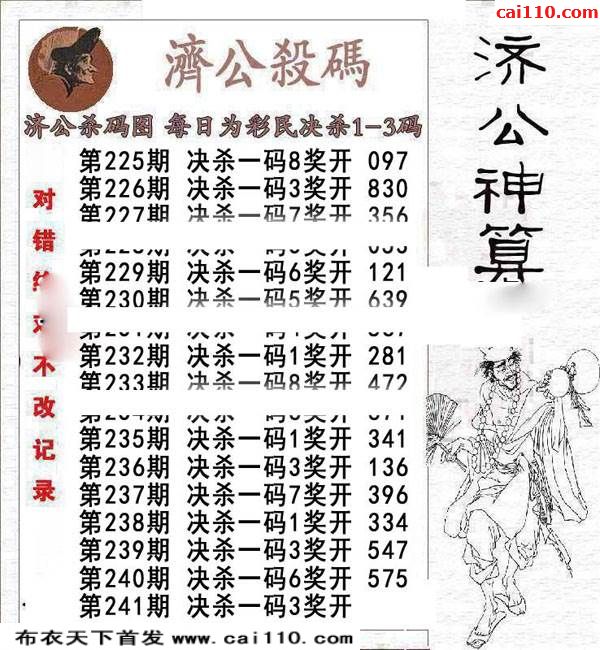 cai110.com
濟公殺碼
济公杀码图 每日为彩民决杀1-3码
第225期 决杀一码8奖开 097
第226期 决杀一码3奖开 830
第227期 决杀一码7奖开 356
第229期 决杀一码6奖开 121
第230期 决杀一码5奖开 639
第232期 决杀一码1奖开 281
第233期 决杀一码8奖开 472
第235期 决杀一码1奖开 341
第236期 决杀一码3奖开 136
第237期 决杀一码7奖开 396
第238期 决杀一码1奖开 334
第239期 决杀一码3奖开 547
第240期 决杀一码6奖开 575
第241期 决杀一码3奖开
对错
不改记录
济公神算
布衣天下首发 www.cai110.com